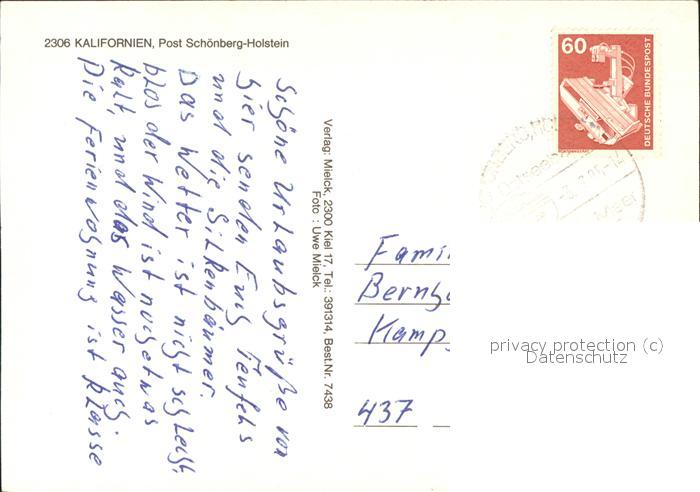 2306 KALIFORNIEN, Post Schönberg-Holstein
Schöne Urlaubsgrüße von
hier senden Euch Tienfehs
und die Silkenbäumer.
Das Wetter ist nicht schlecht
blos der Wind ist noch etwas
kalt, und das Wasser auch.
Die Ferienwohnung ist Klasse
Verlag: Mielck, 2300 Kiel 17, Tel.: 391314, Best.Nr. 7438
Foto : Uwe Mielck
60
DEUTSCHE BUNDESPOST
Fami
Bernh
Kamp
437
privacy protection (c)
Datenschutz